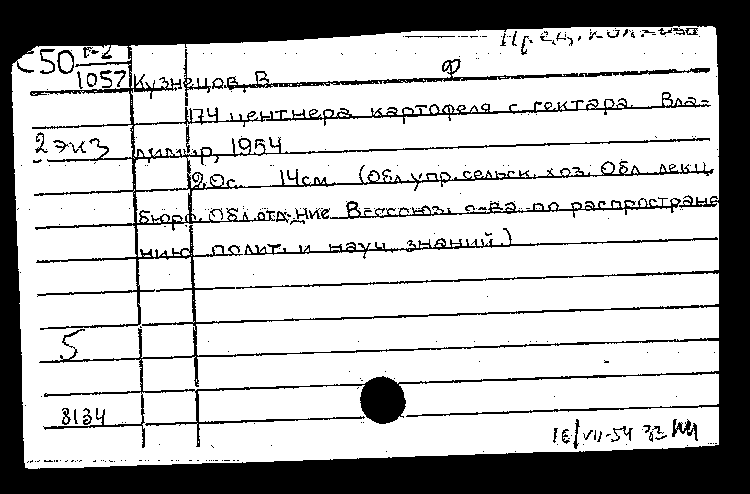 Пред. колхоза
С50 Г-2
1057 Кузнецов, В Ф
174 центнера картофеля с гектара. Вла-
2 экз димир, 1954
9,0с. 14см. (Обл упр. сельск. хоз. Обл лекц.
бюро. Обл отд-ние Всесоюз. о-ва по распростране
нию полит. и науч. знаний.)
5
8134
16/VII-54